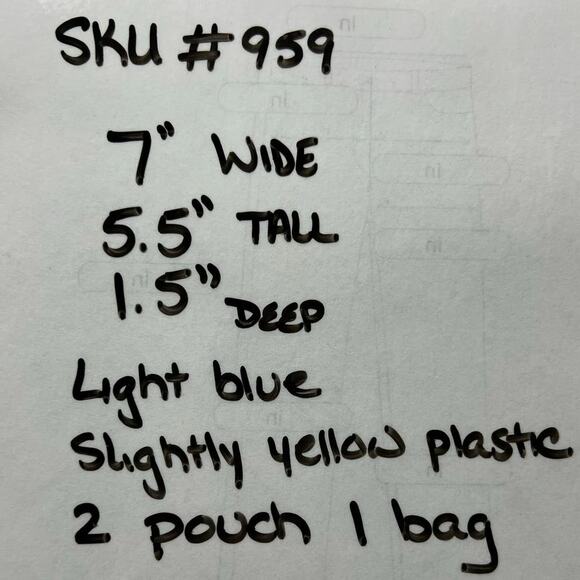 SKU # 959
7" WIDE
5.5" TALL
1.5" DEEP
Light blue
Slightly yellow plastic
2 pouch 1 bag
in
in
in
in
in
in
in